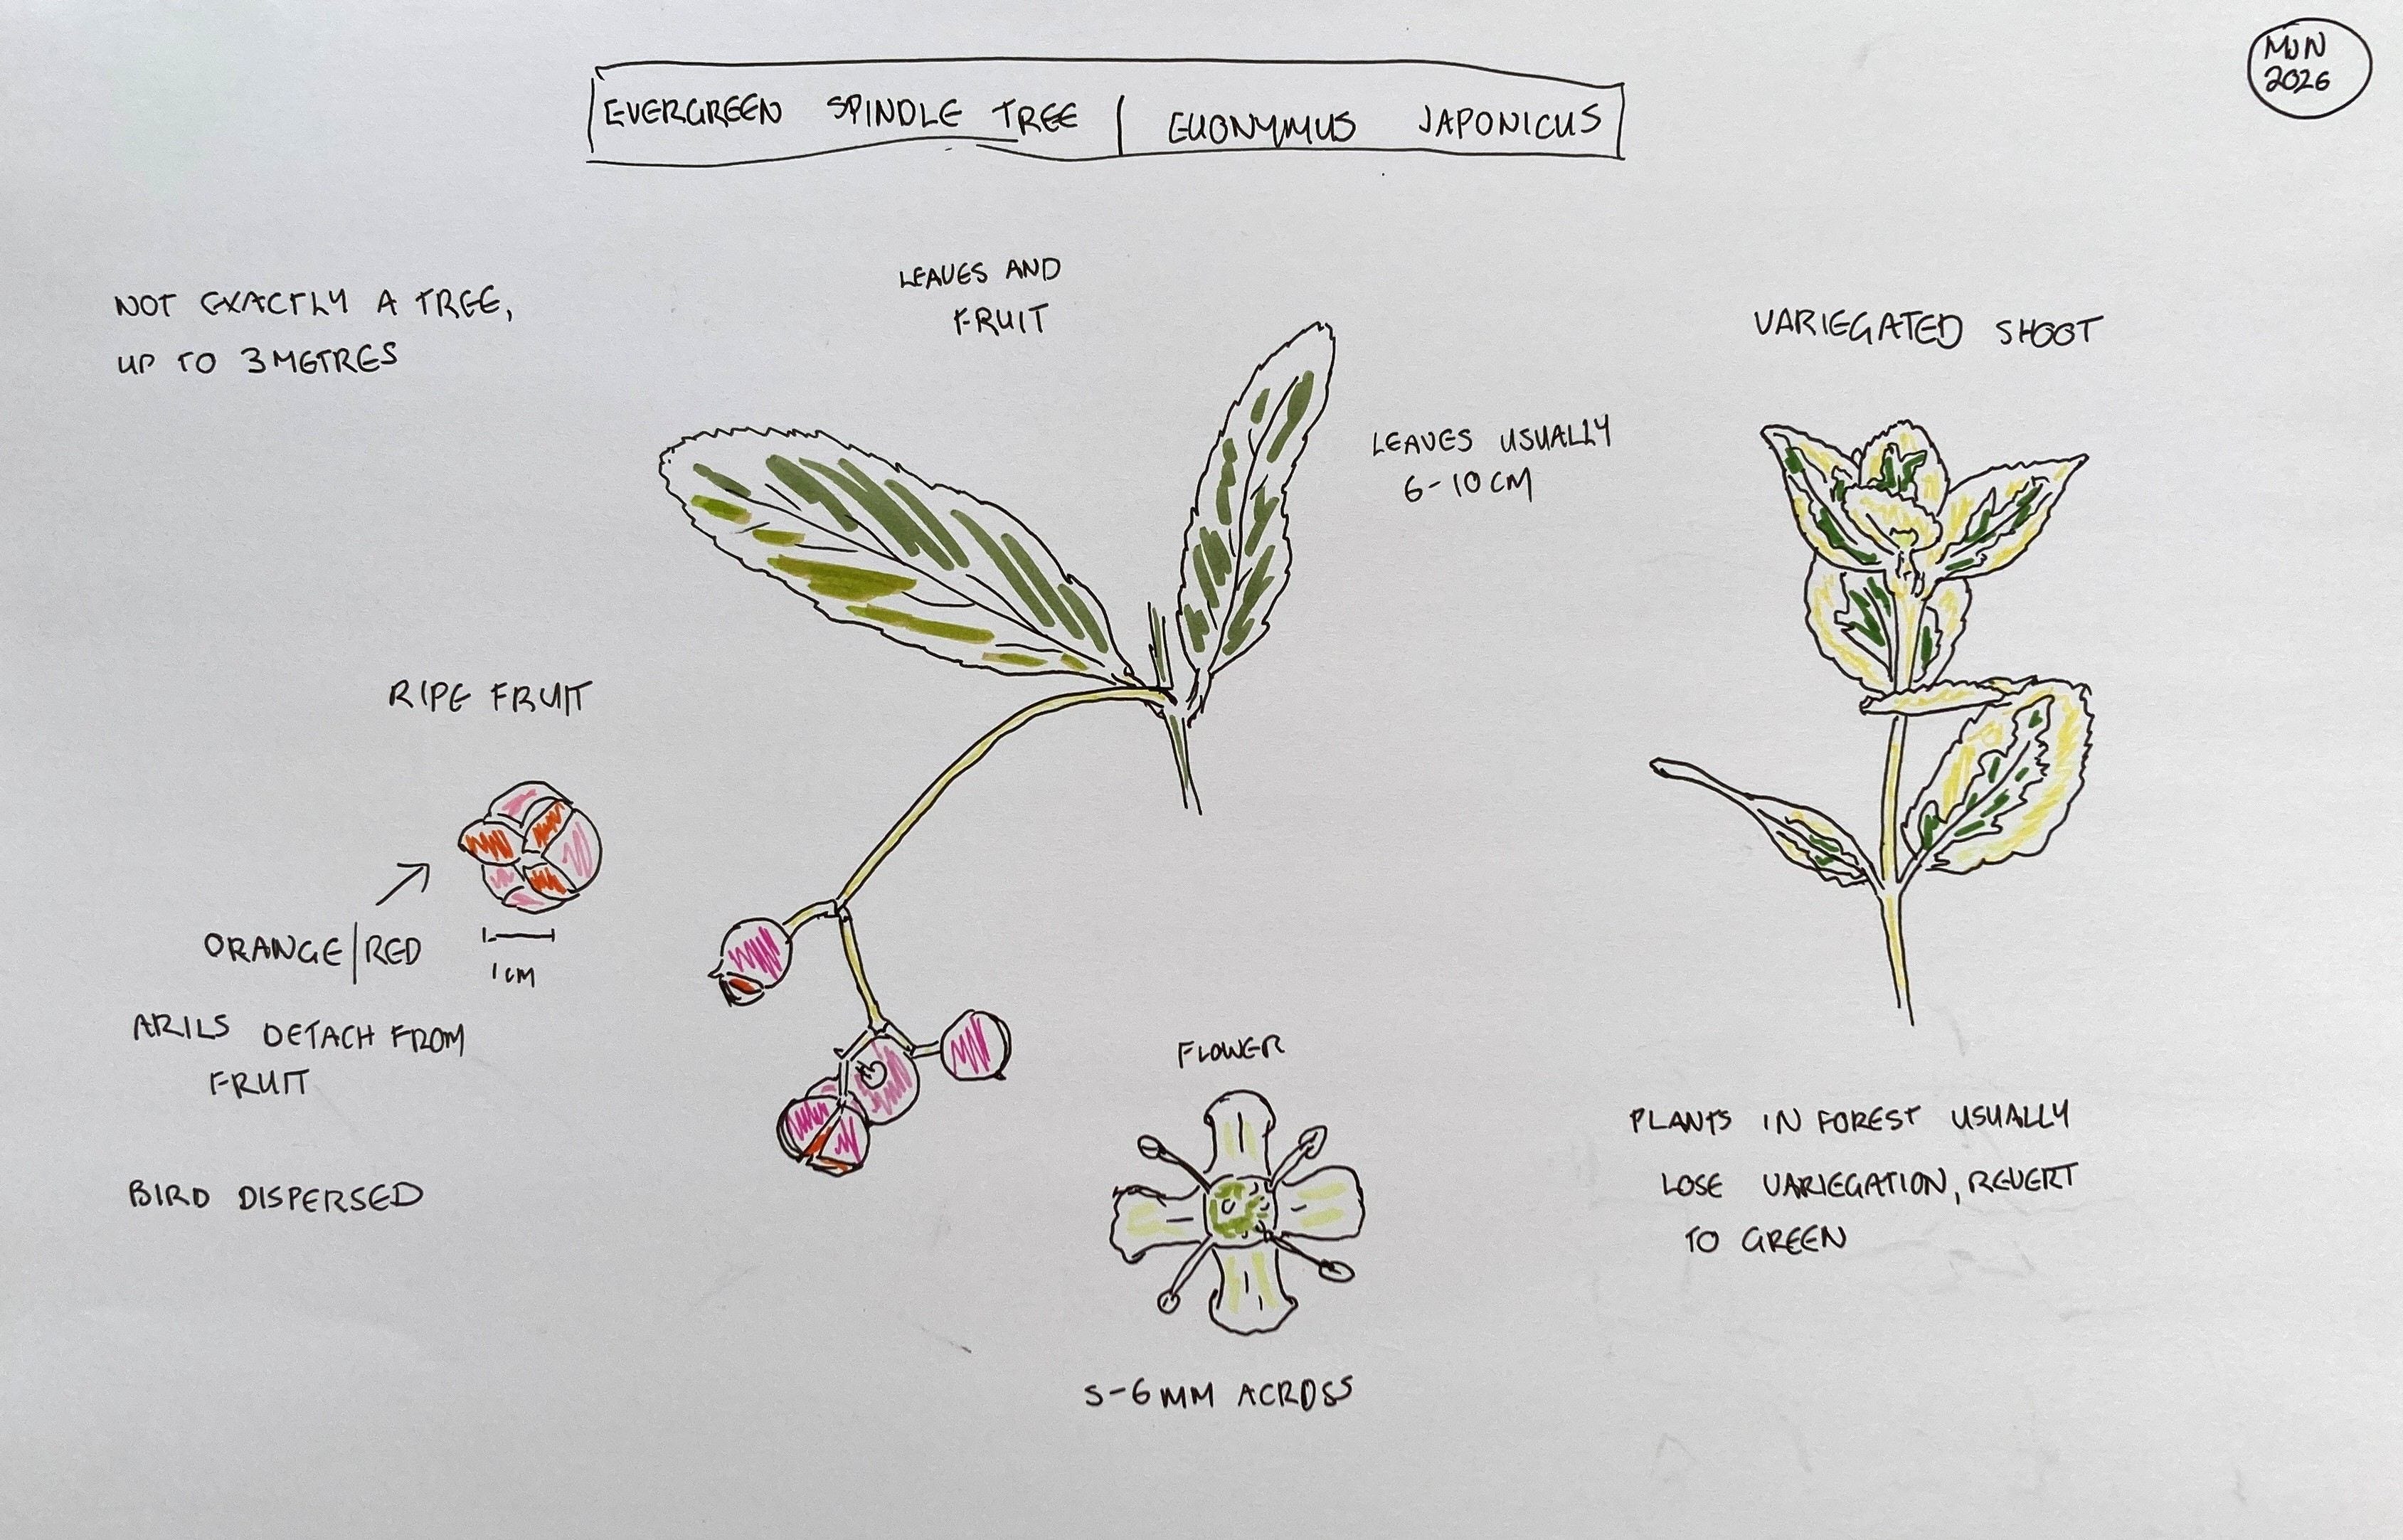 MJN
2026
EVERGREEN SPINDLE TREE | EUONYMUS JAPONICUS
NOT EXACTLY A TREE,
UP TO 3 METRES
LEAVES AND
FRUIT
LEAVES USUALLY
6-10 CM
VARIEGATED SHOOT
RIPE FRUIT
1 CM
ORANGE/RED
ARILS DETACH FROM
FRUIT
BIRD DISPERSED
FLOWER
5-6 MM ACROSS
PLANTS IN FOREST USUALLY
LOSE VARIEGATION, REVERT
TO GREEN